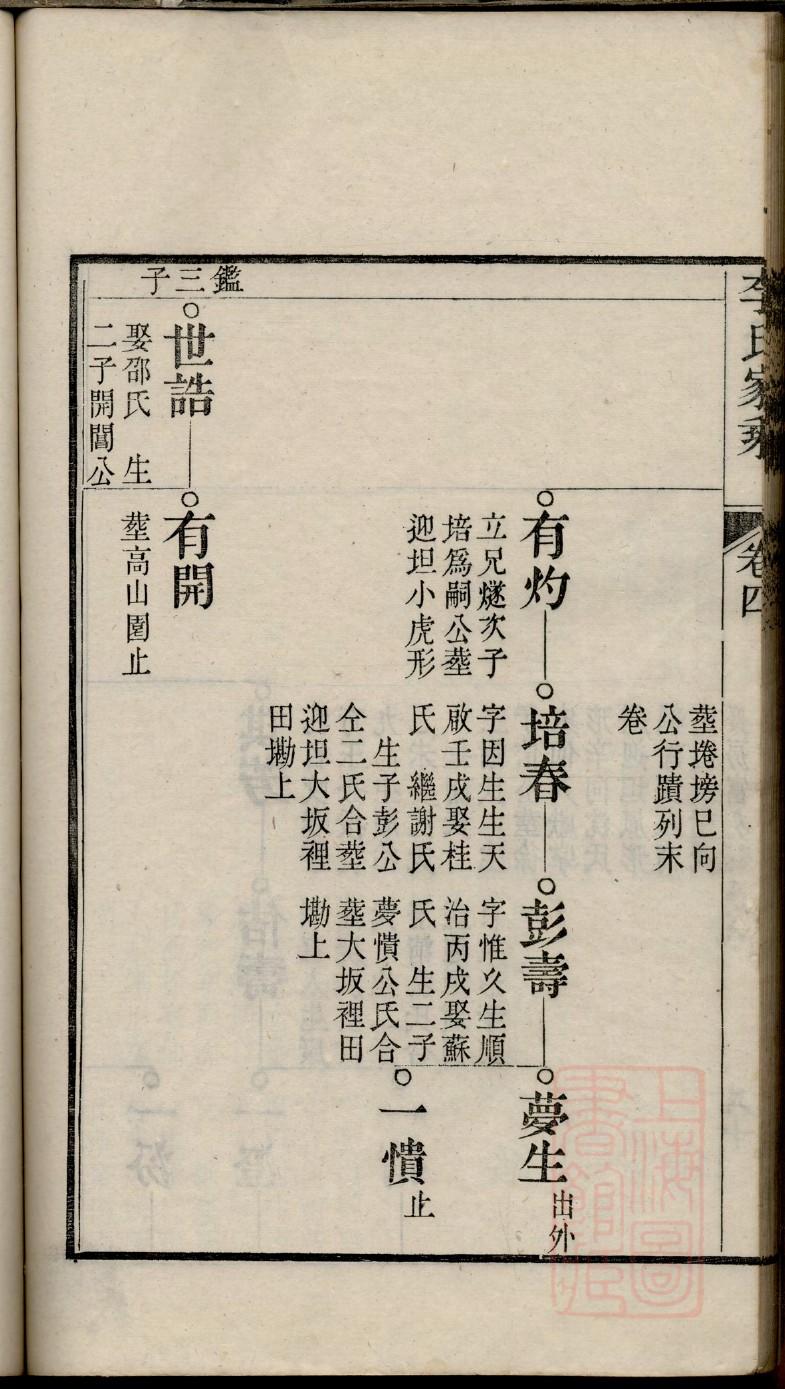 李氏家乘
卷四
塟捲塝巳向
公行蹟列末
卷
有灼
立兄燧次子
培爲嗣公塟
迎坦小虎形
培春
字因生生天
啟壬戌娶桂
氏 繼謝氏
生子彭公
仝二氏合塟
迎坦大坂裡
田墈上
彭壽
字惟久生順
治丙戌娶蘇
氏 生二子
夢憒公氏合
塟大坂裡田
墈上
夢生
出外
一憒
止
鑑三子
世誥
娶邵氏 生
二子開閶公
有開
塟高山園止
上海圖書館藏